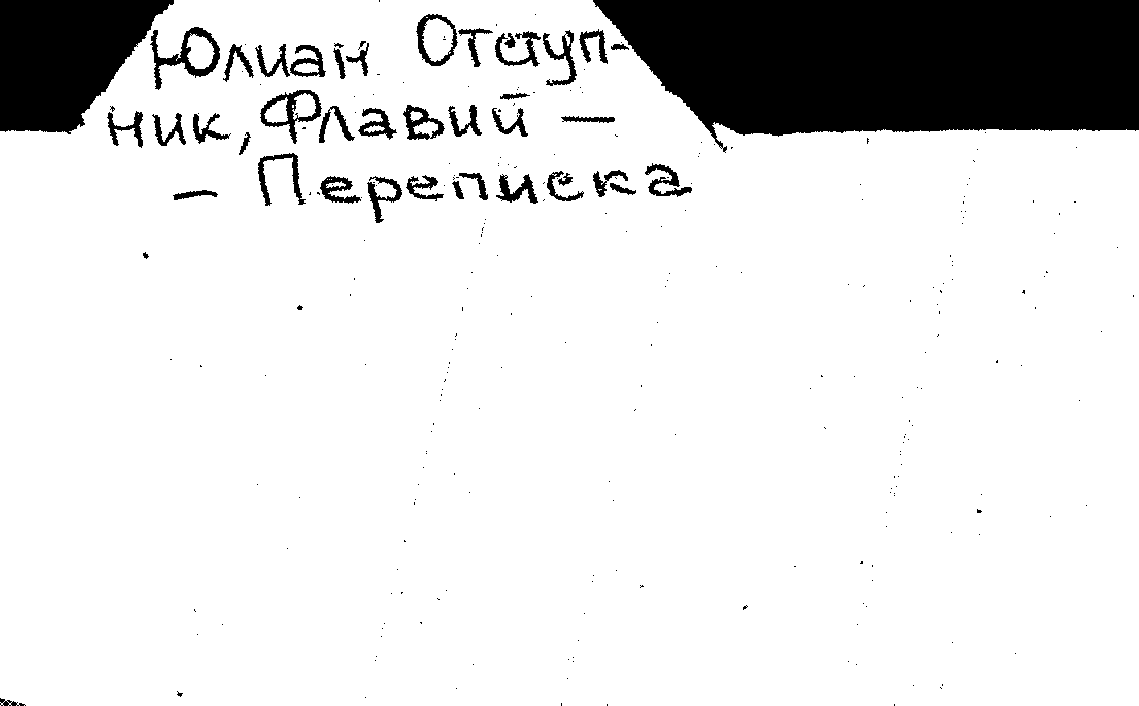 Юлиан Отступ-
ник, Флавий –
– Переписка